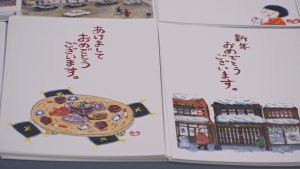 あけまして
おめでとう
ございます。
新年
おめでとう
ございます。